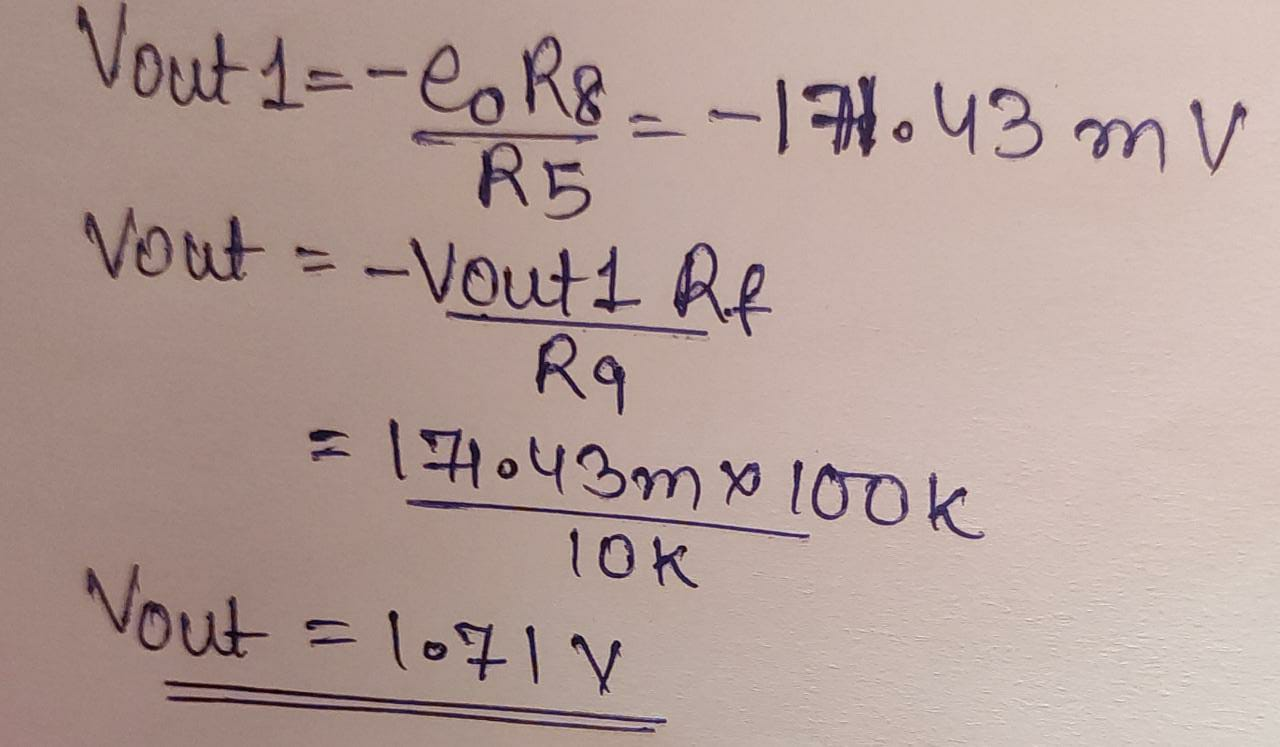 Vout 1 = - e₀ R8 / R5 = - 171.43 mV
Vout = - Vout1 Rf / R9
= 171.43m × 100K / 10K
Vout = 1.71 V